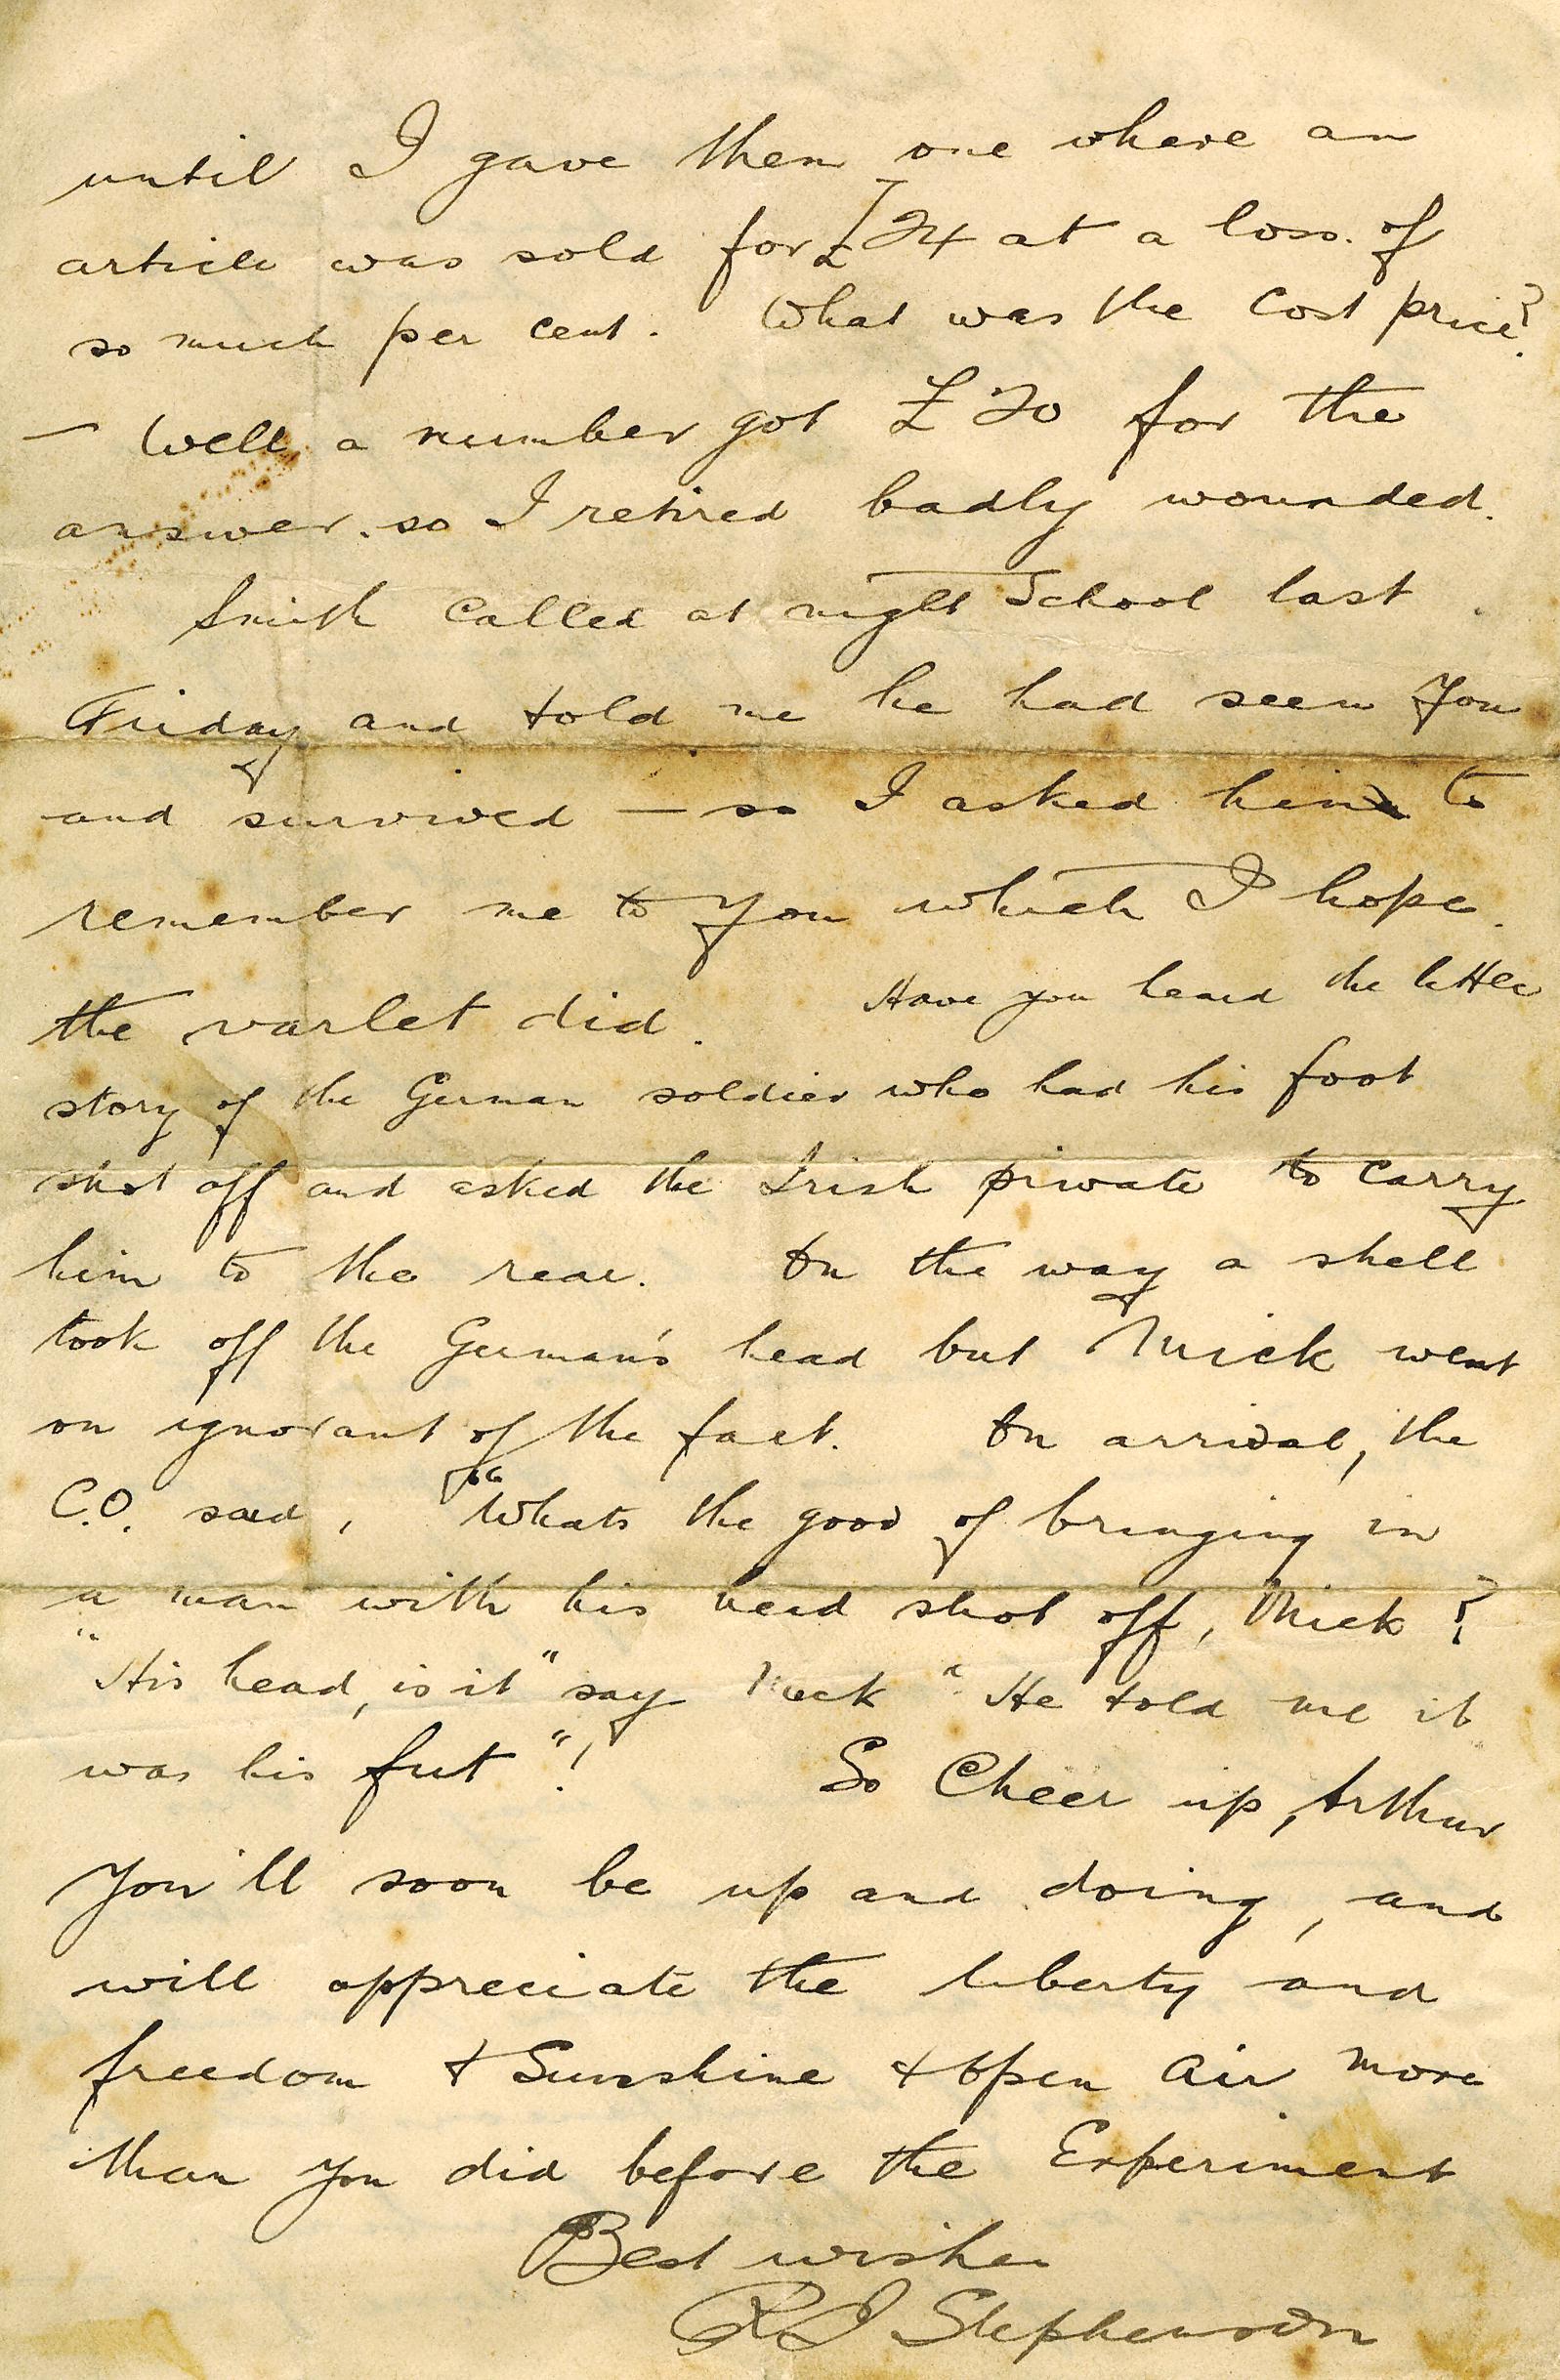 until I gave them one where an
article was sold for £24 at a loss of
so much per cent. What was the Cost price?
— Well, a number got £20 for the
answer. so I retired badly wounded.
Smith Called at night School last
Friday and told me he had seen you
and survived — so I asked him to
remember me to you which I hope
the varlet did. Have you heard the little
story of the German soldier who had his foot
shot off and asked the Irish private to carry
him to the rear. On the way a shell
took off the German's head but Mick went
on ignorant of the fact. On arrival, the
C.O. said, "Whats the good of bringing in
a man with his head shot off, Mick?
"His head, is it" say Mick "He told me it
was his fut"! So Cheer up, Arthur
You'll soon be up and doing, and
will appreciate the liberty and
freedom & Sunshine & open air more
than you did before the Experiment
Best wishes
R J Stephenson